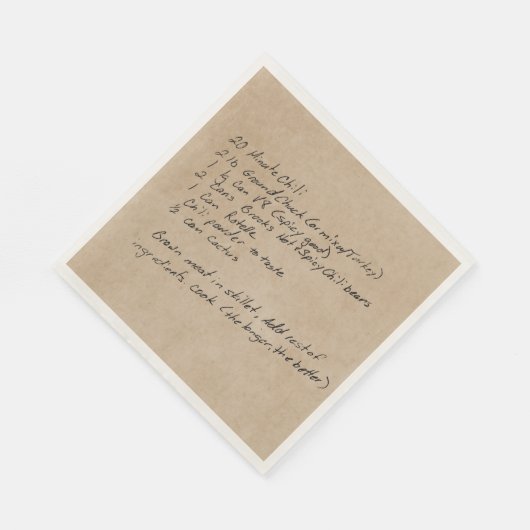 20 Minute Chili
2 lb Ground Chuck (or mix w/ Turkey)
1 lg Can V8 (Spicy good)
2 Cans Brooks Hot & Spicy Chili beans
1 Can Rotelle
Chili powder to taste
1/2 can Cactus
Brown meat in skillet, Add rest of
ingredients. Cook (the longer, the better)